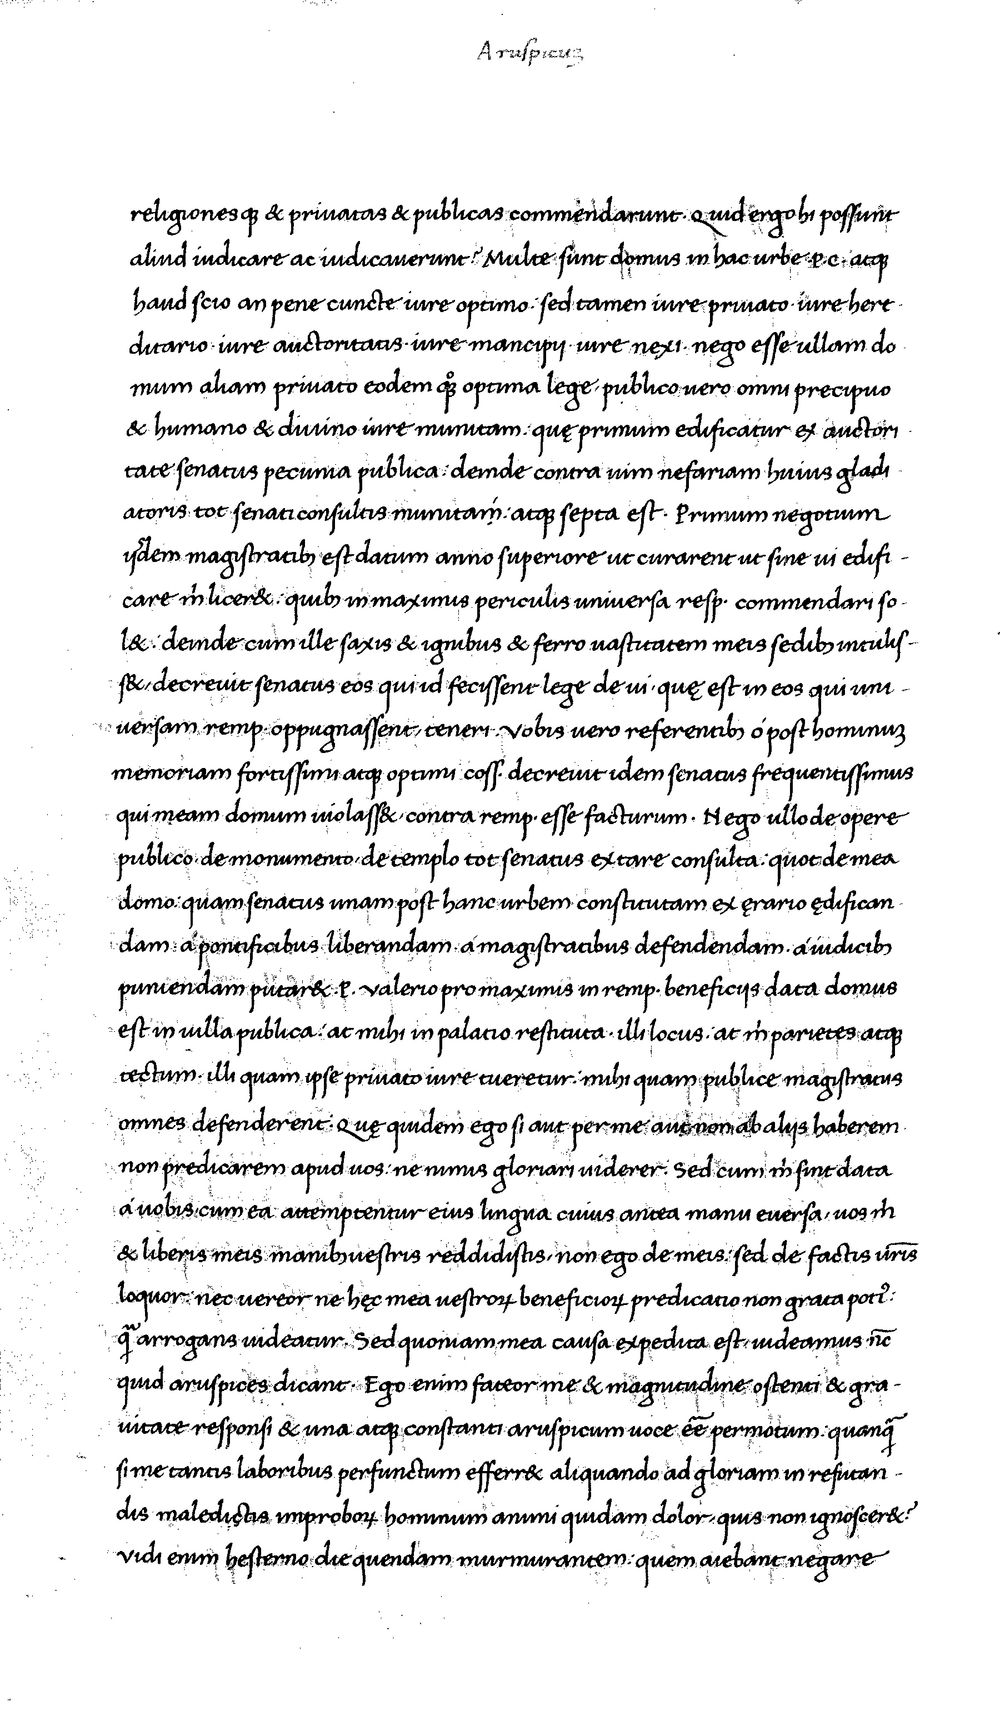 Aruspicuꝫ
religionesqꝫ & priuatas & publicas commendarunt. Quid ergo hi possunt
aliud iudicare ac iudicauerunt? Multe sunt domus in hac urbe .p.c. atqꝫ
haud scio an pene cuncte iure optimo: sed tamen iure priuato. iure here
ditario. iure auctoritatis. iure mancipij. iure nexi. nego esse ullam do
mum aliam priuato eodem qꝫ optima lege, publico uero omni precipuo
& humano & diuino iure munitam. quę primum edificatur ex auctori
tate senatus pecunia publica: deinde contra uim nefariam huius gladi
atoris tot senati consultis munitam: atqꝫ septa est. Primum negotium
isdem magistratibꝫ est datum anno superiore ut curarent ut sine ui edifi-
care m̅ licer&: quibꝫ in maximis periculis uniuersa resp. commendari so-
l&: deinde cum ille saxis & ignibus & ferro uastitatem meis sedibꝫ intulis-
s&, decreuit senatus eos qui id fecissent lege de ui, quę est in eos qui uni-
uersam remp. oppugnassent, teneri. Vobis uero referentibꝫ ó post hominuꝫ
memoriam fortissimi atqꝫ optimi coss. decreuit idem senatus frequentissimus
qui meam domum uiolass&, contra remp. esse facturum. Nego ullo de opere
publico. de monumento, de templo tot senatus extare consulta: quot de mea
domo: quam senatus unam post hanc urbem constitutam ex ęrario ędifican
dam. á pontificibus liberandam. á magistratibus defendendam. á iudicibꝫ
puniendam putar&. P. Valerio pro maximis in remp. beneficijs data domus
est in uilla publica: at mihi in palatio restituta. illi locus. at m̅ parietes atqꝫ
tectum. illi quam ipse priuato iure tueretur: mihi quam publice magistratus
omnes defenderent. Quę quidem ego si aut per me aut non ab alijs haberem
non predicarem apud uos: ne nimis gloriari uiderer. Sed cum m̅ sint data
á uobis: cum ea attemptentur eius lingua cuius antea manu euersa, uos m̅
& liberis meis manibꝫ uestris reddidistis, non ego de meis: sed de factis ur̅is
loquor: nec uereor ne hęc mea uestroꝝ beneficioꝝ predicatio non grata poti᷒:
qᷓ arrogans uideatur. Sed quoniam mea causa expedita est, uideamus nc̅
quid aruspices dicant. Ego enim fateor me & magnitudine ostenti & gra-
uitate responsi & una atqꝫ constanti aruspicum uoce ee̅ permotum. quanqᷓ
si me tantis laboribus perfunctum efferr& aliquando ad gloriam in refutan-
dis maledictis improboꝝ hominum animi quidam dolor, quis non ignoscer&?
Vidi enim hesterno die quendam murmurantem: quem aiebant negare